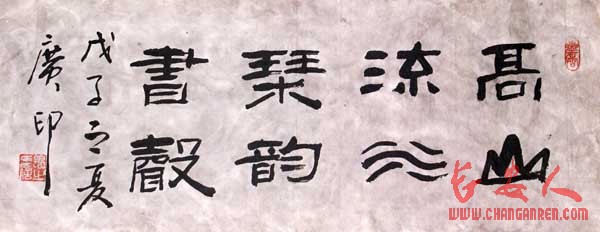 髙山
流水
琹韵
書聲
戊子之夏
廣印
长安人
WWW.CHANGANREN.COM